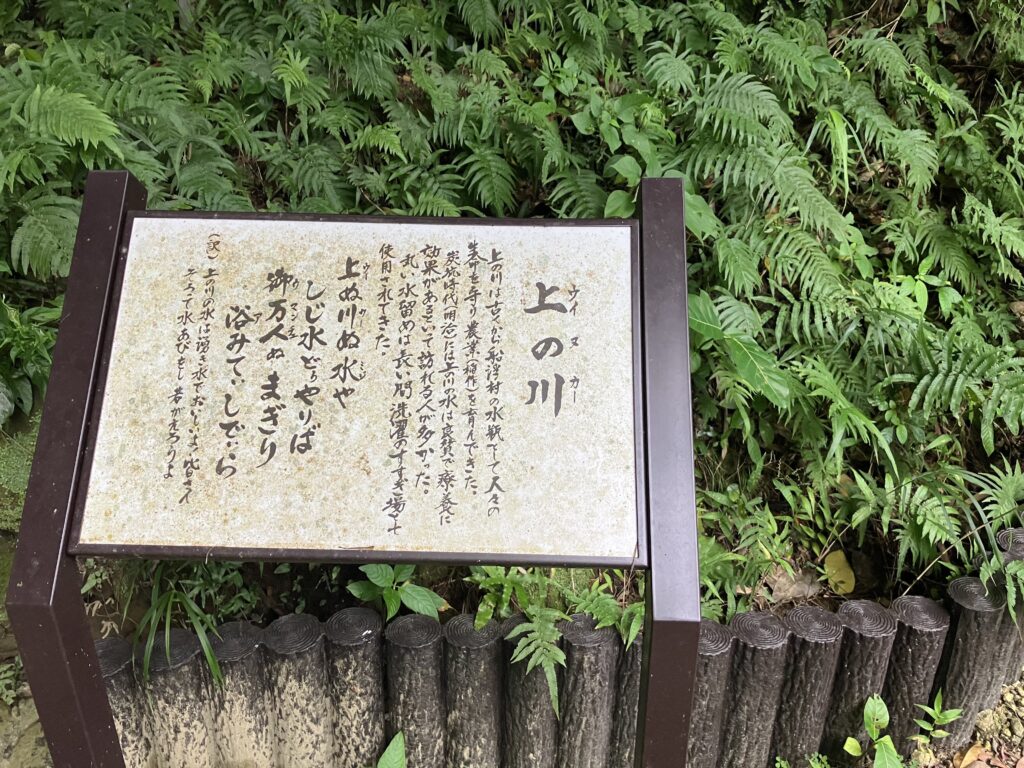 上の川
ウイヌカー
上の川は古くから船浮村の水瓶として人々の
生命を守り農業(稲作)を育んできた。
炭坑時代(明治)には上川水は良質で療養に
効果があるといって訪れる人が多かった。
水留めは長い間洗濯のすすぎ場として
使用されてきた。
上ぬ川ぬ水や
しじ水どぅやりば
御万人ぬまぎり
浴みてぃしでぃら
(訳)上の川の水は湧き水でおいしいよ皆さん
そろって水あびをし若がえろうよ